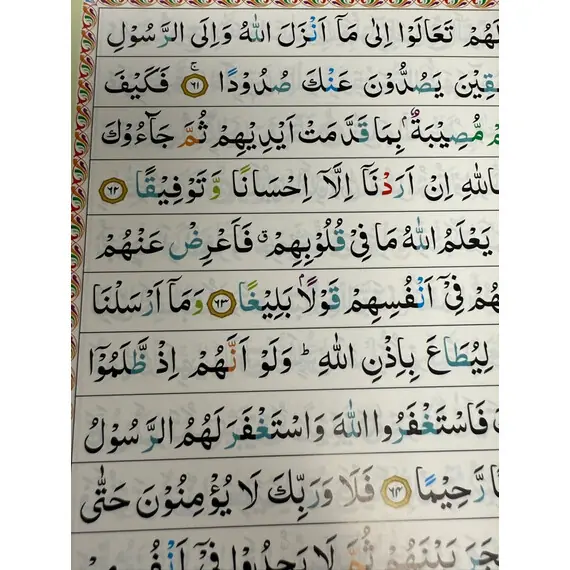 لَهُمْ تَعَالَوْا اِلٰى مَاۤ اَنْزَلَ اللّٰهُ وَاِلَى الرَّسُوْلِ
يَصُدُّوْنَ عَنْكَ صُدُوْدًا ۚ ﴿۶۱﴾ فَكَيْفَ
مُّصِيْبَةٌۢ بِمَا قَدَّمَتْ اَيْدِيْهِمْ ثُمَّ جَآءُوْكَ
بِاللّٰهِ اِنْ اَرَدْنَاۤ اِلَّاۤ اِحْسَانًا وَّتَوْفِيْقًا ﴿۶۲﴾
يَعْلَمُ اللّٰهُ مَا فِيْ قُلُوْبِهِمْ ۗ فَاَعْرِضْ عَنْهُمْ
فِيْۤ اَنْفُسِهِمْ قَوْلًاۢ بَلِيْغًا ﴿۶۳﴾ وَمَاۤ اَرْسَلْنَا
لِيُطَاعَ بِاِذْنِ اللّٰهِ ؕ وَلَوْ اَنَّهُمْ اِذْ ظَّلَمُوْۤا
فَاسْتَغْفَرُوا اللّٰهَ وَاسْتَغْفَرَ لَهُمُ الرَّسُوْلُ
رَّحِيْمًا ﴿۶۴﴾ فَلَا وَرَبِّكَ لَا يُؤْمِنُوْنَ حَتّٰى
بَيْنَهُمْ ثُمَّ لَا يَجِدُوْا فِيْۤ